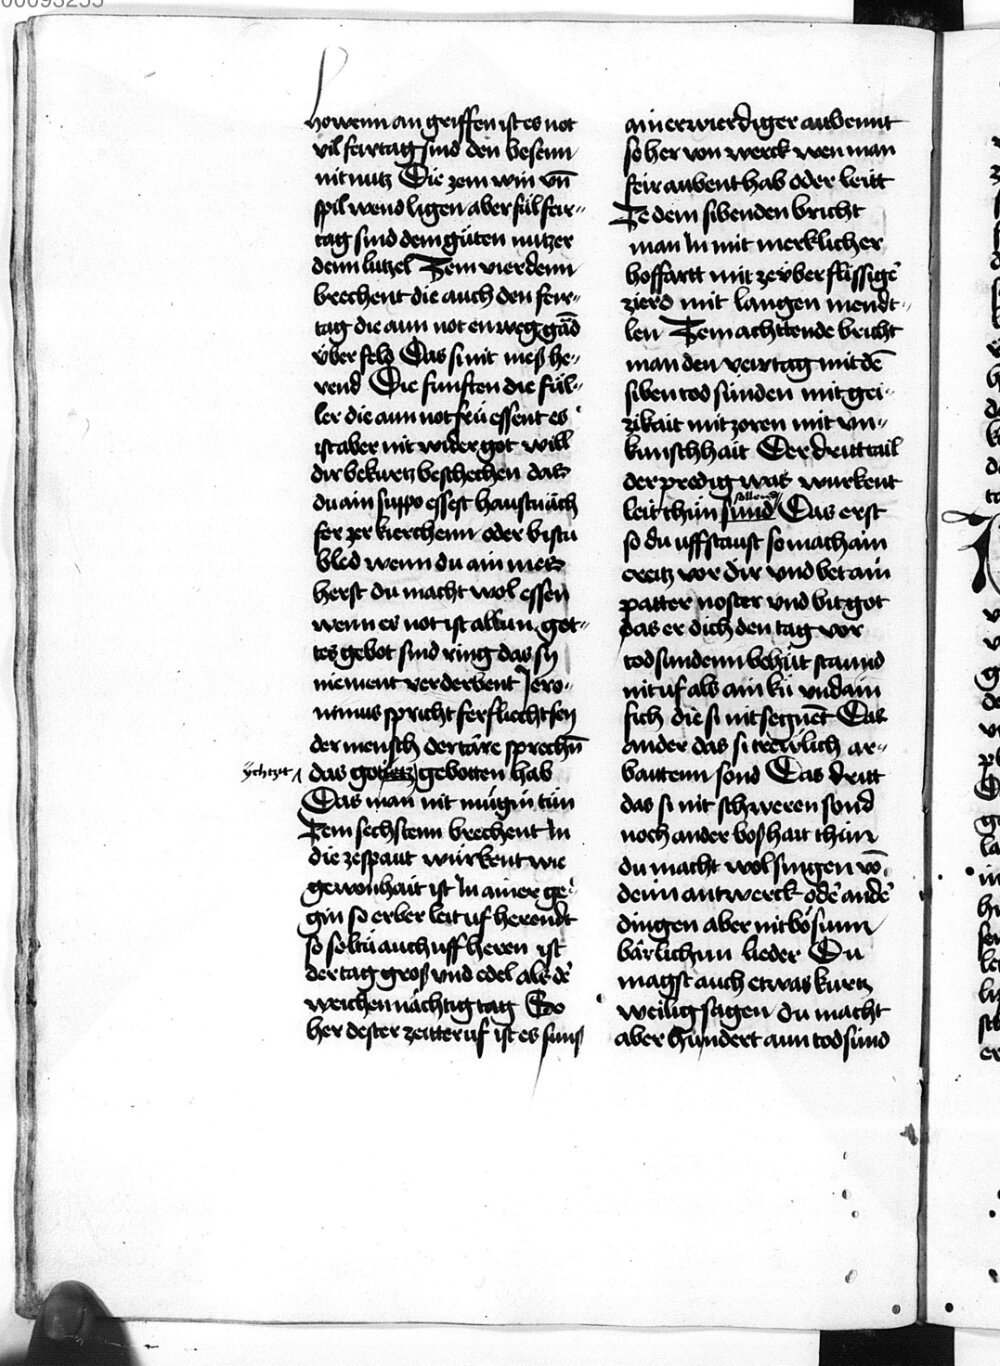 howenn an griffen ist es not
vil feirtag sind den besenn
nit nutz Die zem win vn̄
spil wend ligen aber fúl feir-
tag sind dem gúten nutzer
denn lutzel Zem vierdenn
brechent die auch den feir-
tag die aun not en weg gād
vber feld Das si nit meß he-
rend Die funften die fúl-
ler die aun not frú essent es
ist aber nit wider got will
dir bekurtz beschechen das
du ain suppo essest haust nách
fer zer kierchenn oder bistu
bled wenn du ain mess
herst du macht wol essen
wenn es not ist allun got-
tes gebot sind ring das sy
niement verderbent Jero-
nimus spricht ferfliecht sey
der mensch der táre sprechn̄
ychtzt das got gebotten hab
Das man nit múgin tún
Zem sechstenn brechent In
die zespaut wúrkent wie
gewonhait ist In ainer ge-
gin so erber leit uf herendt
so soltu auch uff heren ist
der tag groß vnd edel als de᷑
weichennáchtig tag So
her dester zeitter uf ist es suns
ain erwierdiger aubennt
so her von werck wen man
feir aubent hab oder leitt
Ze dem sibenden bricht
man In mit merklicher
hoffartt mit zevberflissige᷑
zierd mit langen mendt-
len Zem achttende bricht
man den veirtag mit dē
siben tod súnden mit gei-
zikait mit zoren mit vn-
kunschhait Der dritt tail
der predig was wurkent
leit thún sund söllend Das erst
so du uffstaust so mach ain
creitz vor dir vnd bet ain
patter noster vnd bit got
das er dich den tag vor
tod sundenn behút staund
nit uf als ain kú vnd ain
fich die si nit segnēt Das
ander das si trewlich ar-
baittenn sond Das dritt
das si nit schweren sond
noch ander boßhait thún
du macht wol singen vō
deim antwerck ode᷑ ande᷑
dingen aber nit bósunn
bárlichnn lieder Du
magst auch etwas kurtz
weilig sagen du macht
aber hundert aun tod súnd